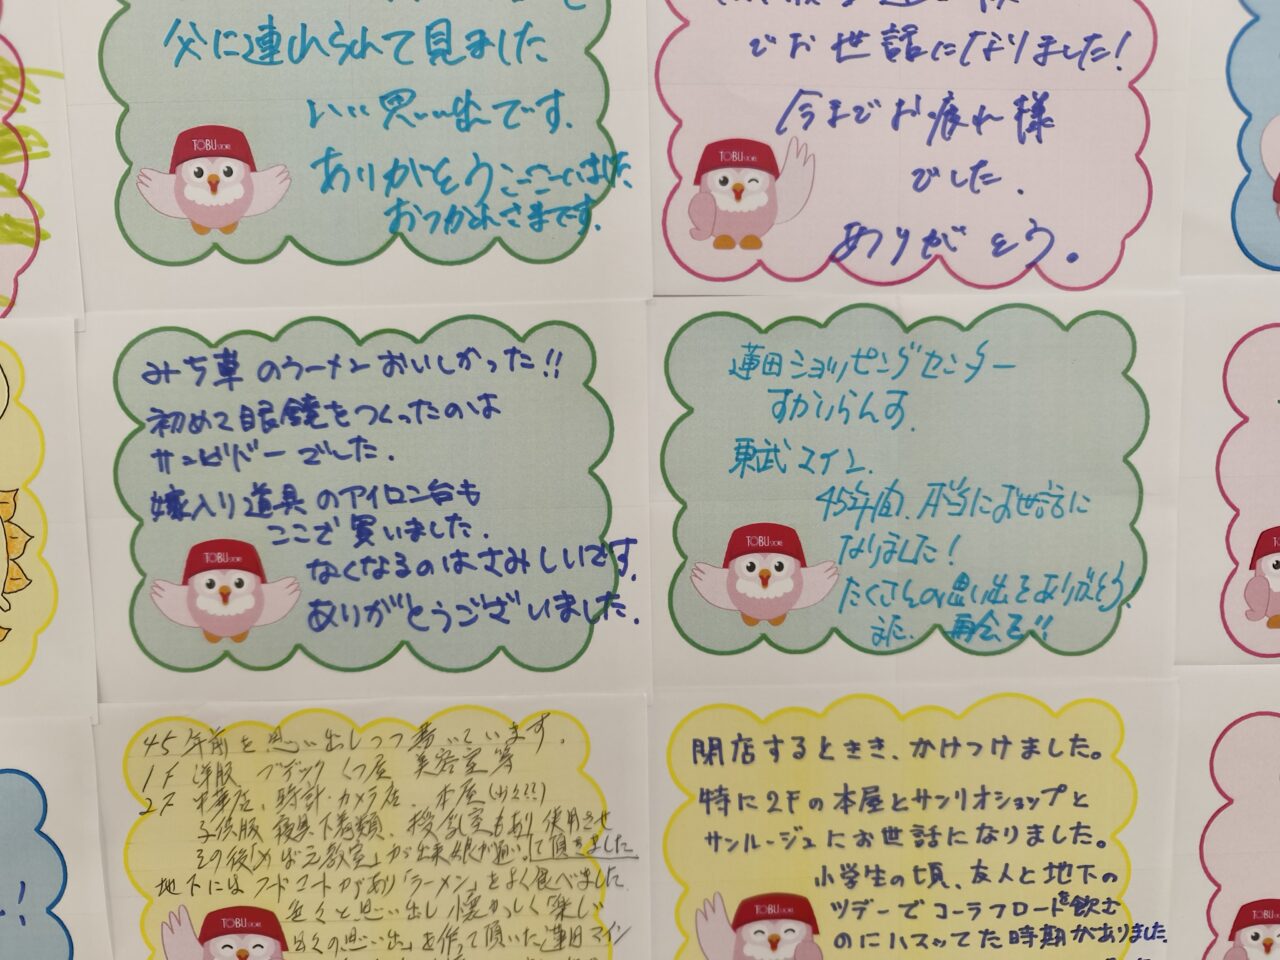 父に連れられて見ました
いい思い出です.
ありがとうございました.
おつかれさまです.
TOBU STORE
でお世話になりました!
今までお疲れ様
でした.
ありがとう。
TOBU STORE
みち草のラーメンおいしかった!!
初めて眼鏡をつくったのは
サンビバーでした.
嫁入り道具のアイロン台も
ここで買いました.
なくなるのはさみしいです.
ありがとうございました.
TOBU STORE
蓮田ショッピングセンター
すかいらんす.
東武マイン.
45年間、本当にお世話に
なりました!
たくさんの思い出をありがとう!
また、再会を!!
TOBU STORE
45年前を思い出しつつ書いています.
1F 洋服 ブテック くつ屋 美容室等
2F 中華店、時計・カメラ店、本屋
子供服 寝具 下着類、
して頂きました
地下にはフードコートがあり「ラーメン」をよく食べました
色々と思い出し懐かしく楽しい
日々の思い出を作って頂いた蓮田マイン
TOBU STORE
閉店するときき、かけつけました。
特に2Fの本屋とサンリオショップと
サンルージュにお世話になりました。
小学生の頃、友人と地下の
ツデーでコーラフロートを飲む
のにハマってた時期がありました.
TOBU STORE